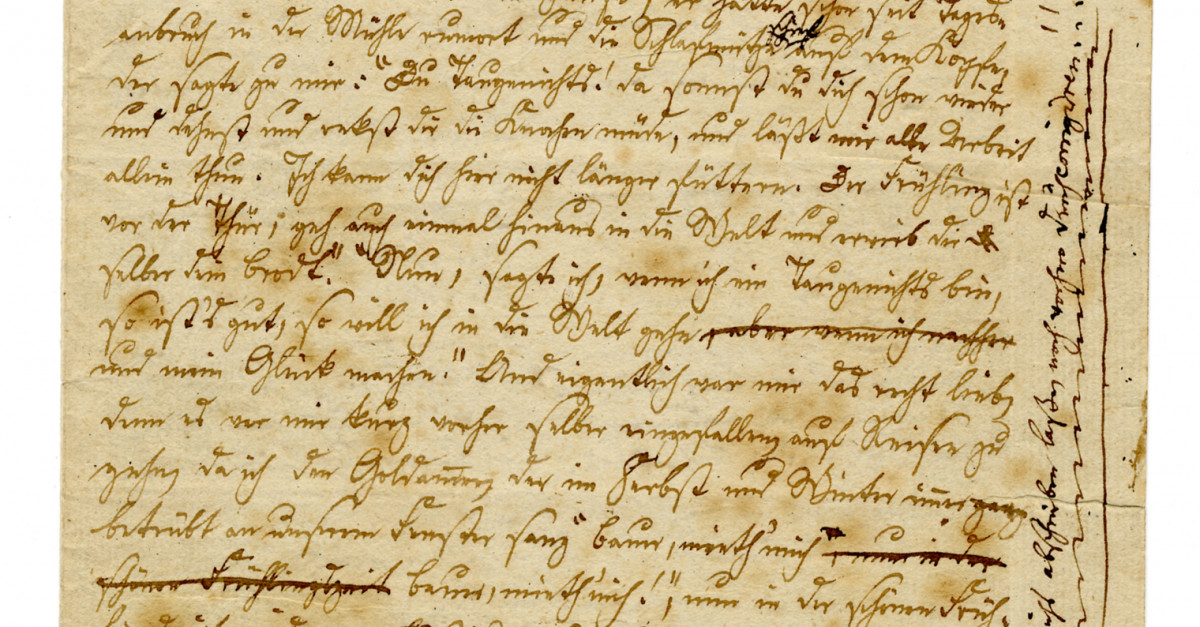 er hatte schon seit Tages-
anbruch in der Mühle rumort und die Schlafmütze schief auf dem Kopfe,
der sagte zu mir: "Du Taugenichts! da sonnst du dich schon wieder
und dehnst und rekst dir die Knochen müde, und läßt mir alle Arbeit
allein thun. Ich kann dich hier nicht länger füttern. Der Frühling ist
vor der Thür, geh auch einmal hinaus in die Welt und erwirb dir
selber dein Brodt." "Nun, sagte ich, wenn ich ein Taugenichts bin,
so ist's gut, so will ich in die Welt gehn, aber wenn ich nachher
und mein Glück machen." Und eigentlich war mir das recht lieb,
denn es war mir kurz vorher selber eingefallen, auf Reisen zu
gehn, da ich den Goldammer, der im Herbst und Winter immer ganz
betrübt an unserem Fenster sang "baur, mieth' mich, nun in der
schönen Frühlingszeit baur, mieth' mich!", nun in der schönen Früh-